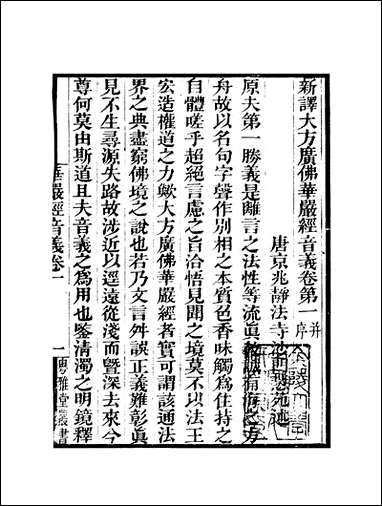 新譯大方廣佛華嚴經音義卷第一并序
唐京兆靜法寺沙門慧苑述
原夫第一勝義是離言之法性等流眞教誠有海之方
舟故以名句字聲作別相之本質色香味觸爲住持之
自體嗟乎超絕言慮之旨洽悟見聞之境莫不以法王
宏造權道之力歟大方廣佛華嚴經者實可謂該通法
界之典盡窮佛境之說也若乃文言舛誤正義難彰眞
見不生尋源失路故涉近以遥遠從淺而暨深去來今
尊何莫由斯道且夫音義之爲用也鑒清濁之明鏡釋
華嚴經音義卷一
一
粵雅堂叢書